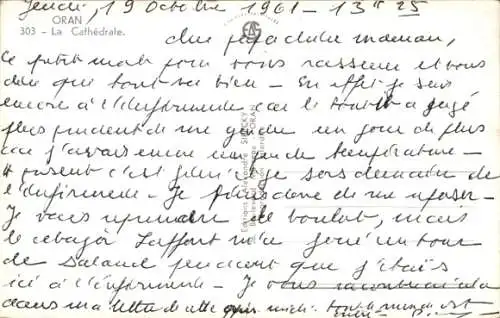 Jeudi, 19 Octobre 1961 - 13H 25
ORAN
303 - La Cathédrale.
Cher papa chère maman,
Ce petit mot pour vous rassurer et vous
dire que tout va bien - En effet je suis
encore à l'infirmerie car le toubib a jugé
plus prudent de me garder un jour de plus
car j'avais encore un peu de température -
à présent c'est fini je sors demain de
l'infirmerie - Je de me reposer -
Je vais reprendre le boulot, mais
le Laffont m'a joué un tour
de salaud pendant que j'étais
ici à l'infirmerie - Je vous raconterai cela
dans ma lettre de cette après midi. tout le monde est